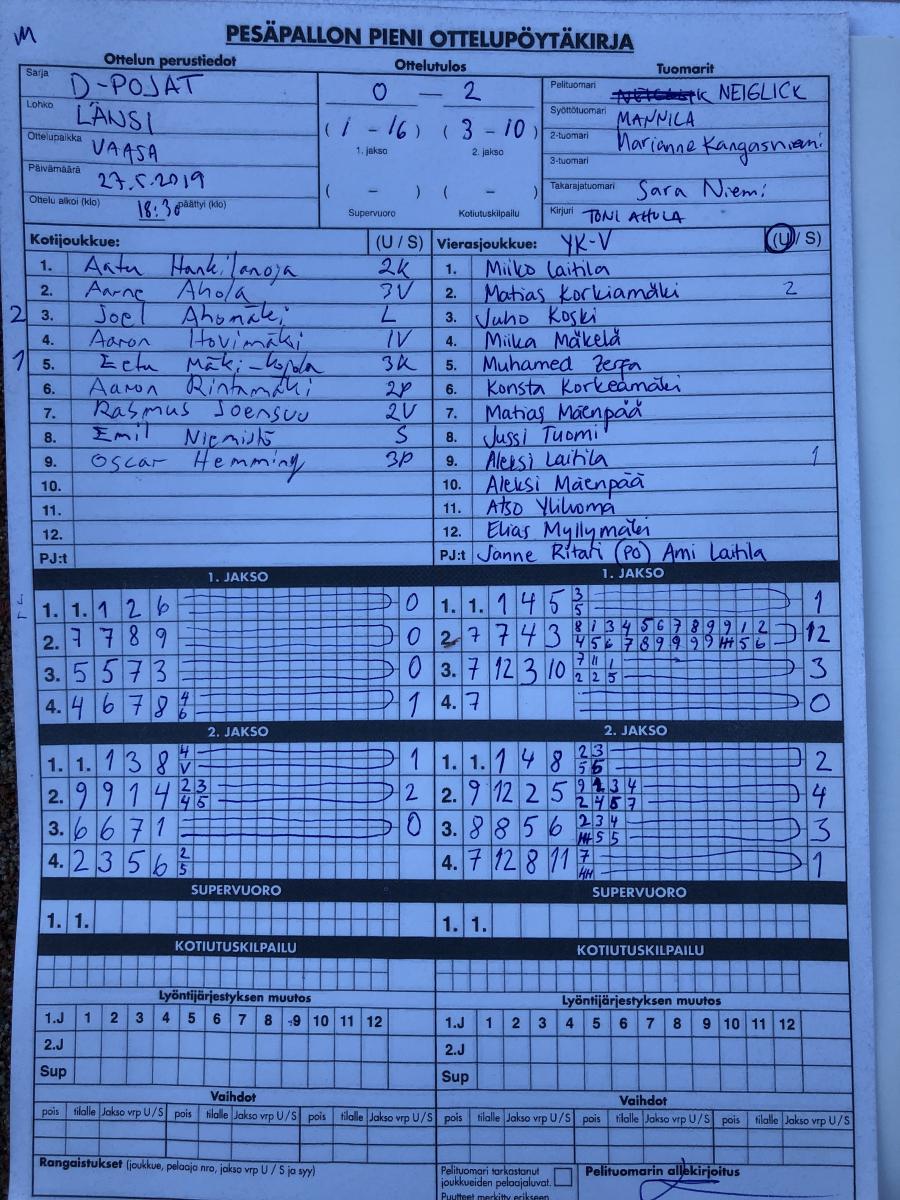 M
PESÄPALLON PIENI OTTELUPÖYTÄKIRJA
Ottelun perustiedot
Sarja D-POJAT
Lohko LÄNSI
Ottelupaikka VAASA
Päivämäärä 27.5.2019
Ottelu alkoi (klo) 18:30 päättyi (klo)
Ottelutulos
0 – 2
(1 – 16) (3 – 10)
1. jakso 2. jakso
( – ) ( – )
Supervuoro Kotiutuskilpailu
Tuomarit
Pelituomari NEIGLICK
Syöttötuomari MANNILA
2-tuomari Marianne Kangasniemi
3-tuomari
Takarajatuomari Sara Niemi
Kirjuri TONI AHOLA
Kotijoukkue: (U / S)
1. Aatu Hankilanoja 2K
2. Aarne Ahola 3V
2 3. Joel Ahomäki L
4. Aaron Hovimäki 1V
1 5. Eetu Mäki-Kojola 3K
6. Aaron Rintamäki 2P
7. Rasmus Joensuu 2V
8. Emil Niemistö S
9. Oscar Hemming 3P
10.
11.
12.
PJ:t
Vierasjoukkue: YK-V (U / S)
1. Miiko Laitila
2. Matias Korkiamäki 2
3. Juho Koski
4. Miika Mäkelä
5. Muhamed Zerfa
6. Konsta Korkeamäki
7. Matias Mäenpää
8. Jussi Tuomi
9. Aleksi Laitila 1
10. Aleksi Mäenpää
11. Atso Yliluoma
12. Elias Myllymäki
PJ:t Janne Ritari (PO) Ami Laitila
1. JAKSO
1. 1. 1 2 6 0
2. 7 7 8 9 0
3. 5 5 7 3 0
4. 4 6 7 8 4 1
6
1. JAKSO
1. 1. 1 4 5 3 1
5
2. 7 7 4 3 8 1 3 4 5 6 7 8 9 9 1 2 12
4 5 6 7 8 9 9 9 9 5 6
3. 7 12 3 10 7 11 1 3
2 2 5
4. 7 0
2. JAKSO
1. 1. 1 3 8 4 1
V
2. 9 9 1 4 2 3 2
4 5
3. 6 6 7 1 0
4. 2 3 5 6 2
5
2. JAKSO
1. 1. 1 4 8 2 3 2
5 5
2. 9 12 2 5 9 2 3 4 4
2 4 5 7
3. 8 8 5 6 2 3 4 3
5 5
4. 7 12 8 11 7 1
SUPERVUORO
1. 1.
SUPERVUORO
1. 1.
KOTIUTUSKILPAILU
KOTIUTUSKILPAILU
Lyöntijärjestyksen muutos
1.J 1 2 3 4 5 6 7 8 9 10 11 12
2.J
Sup
Lyöntijärjestyksen muutos
1.J 1 2 3 4 5 6 7 8 9 10 11 12
2.J
Sup
Vaihdot
pois tilalle Jakso vrp U/S pois tilalle Jakso vrp U/S pois tilalle Jakso vrp U/S
Vaihdot
pois tilalle Jakso vrp U/S pois tilalle Jakso vrp U/S pois tilalle Jakso vrp U/S
Rangaistukset (joukkue, pelaaja nro, jakso vrp U / S ja syy)
Pelituomari tarkastanut
joukkueiden pelaajaluvat.
Puutteet merkitty erikseen
Pelituomarin allekirjoitus